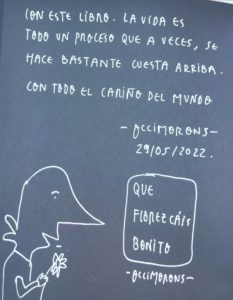 CON ESTE LIBRO. LA VIDA ES
TODO UN PROCESO QUE A VECES, SE
HACE BASTANTE CUESTA ARRIBA.
CON TODO EL CARIÑO DEL MUNDO
-OCCIMORONS-
29/05/2022.
QUE
FLOREZCÁIS
BONITO
-OCCIMORONS-